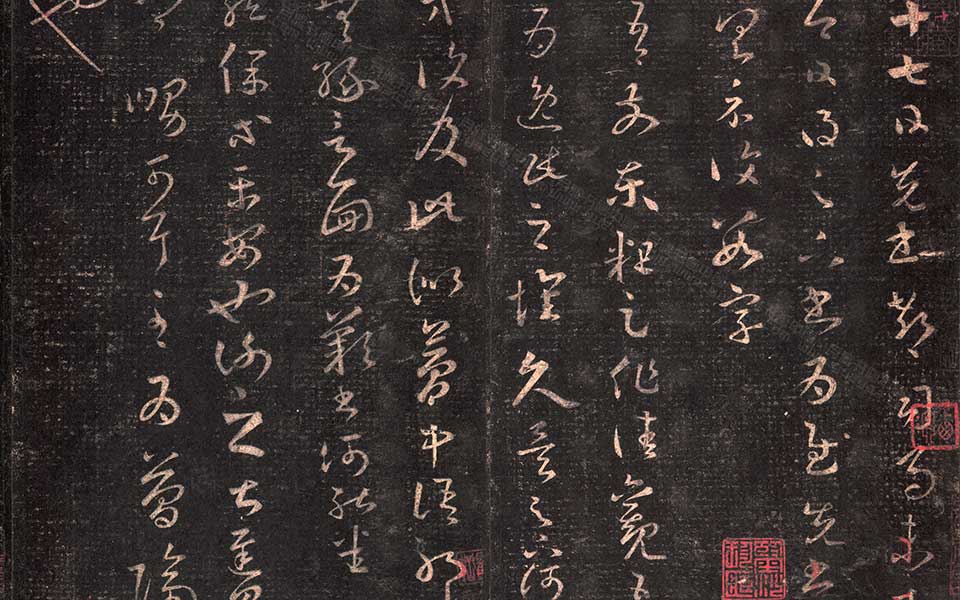 十七日先書郗司馬未
日得足下書為慰先書
具示復數字
吾前東粗足作佳觀
為逸民之懷久矣足下何
等復及此似夢中語耶
無緣言面為歎書何能悉
龍保等平安也謝之甚遲見
舅可耳至為簡隔
也